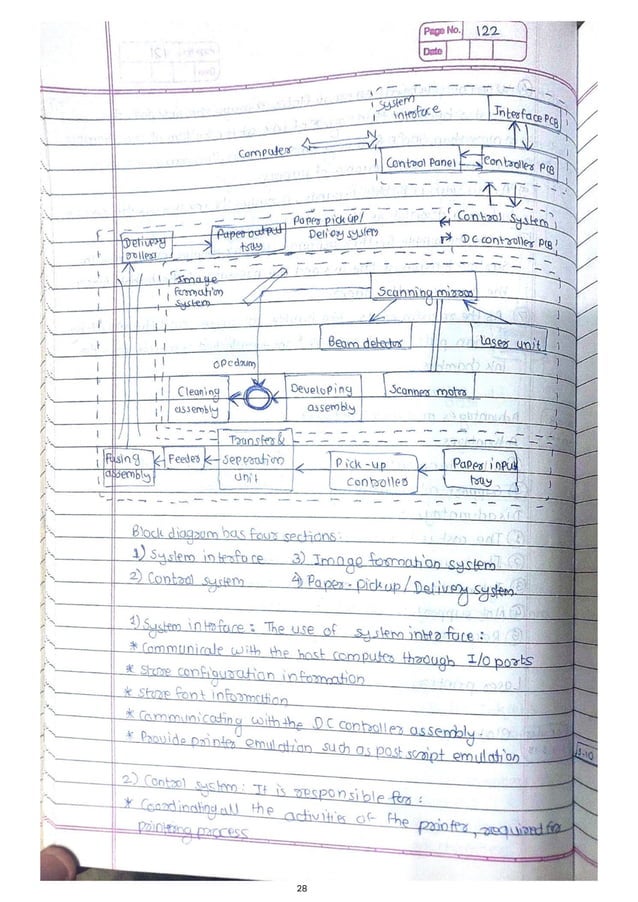 Page No. 122
Date
System
interface
Interface PCB
Computer
Control Panel
Controller PCB
Control System
DC controller PCB
Paper pick up/
Delivery system
Delivery
rollers
Paper output
tray
Image
formation
system
Scanning mirror
Beam detector
Laser unit
OPC drum
Cleaning
assembly
Developing
assembly
Scanner motor
Transfer &
seperation
unit
Fusing
assembly
Feeder
Pick-up
controller
Paper input
tray
Block diagram has four sections:
1) System interface 3) Image formation system
2) Control system 4) Paper-Pickup / Delivery System.
1) System interface: The use of system interface:
* Communicate with the host computer through I/O ports
* Store configuration information
* Store font information
* Communicating with the DC controller assembly.
* Provide printer emulation such as post script emulation
2) Control system: It is responsible for:
* Coordinating all the activities of the printer, required for
printing process
28